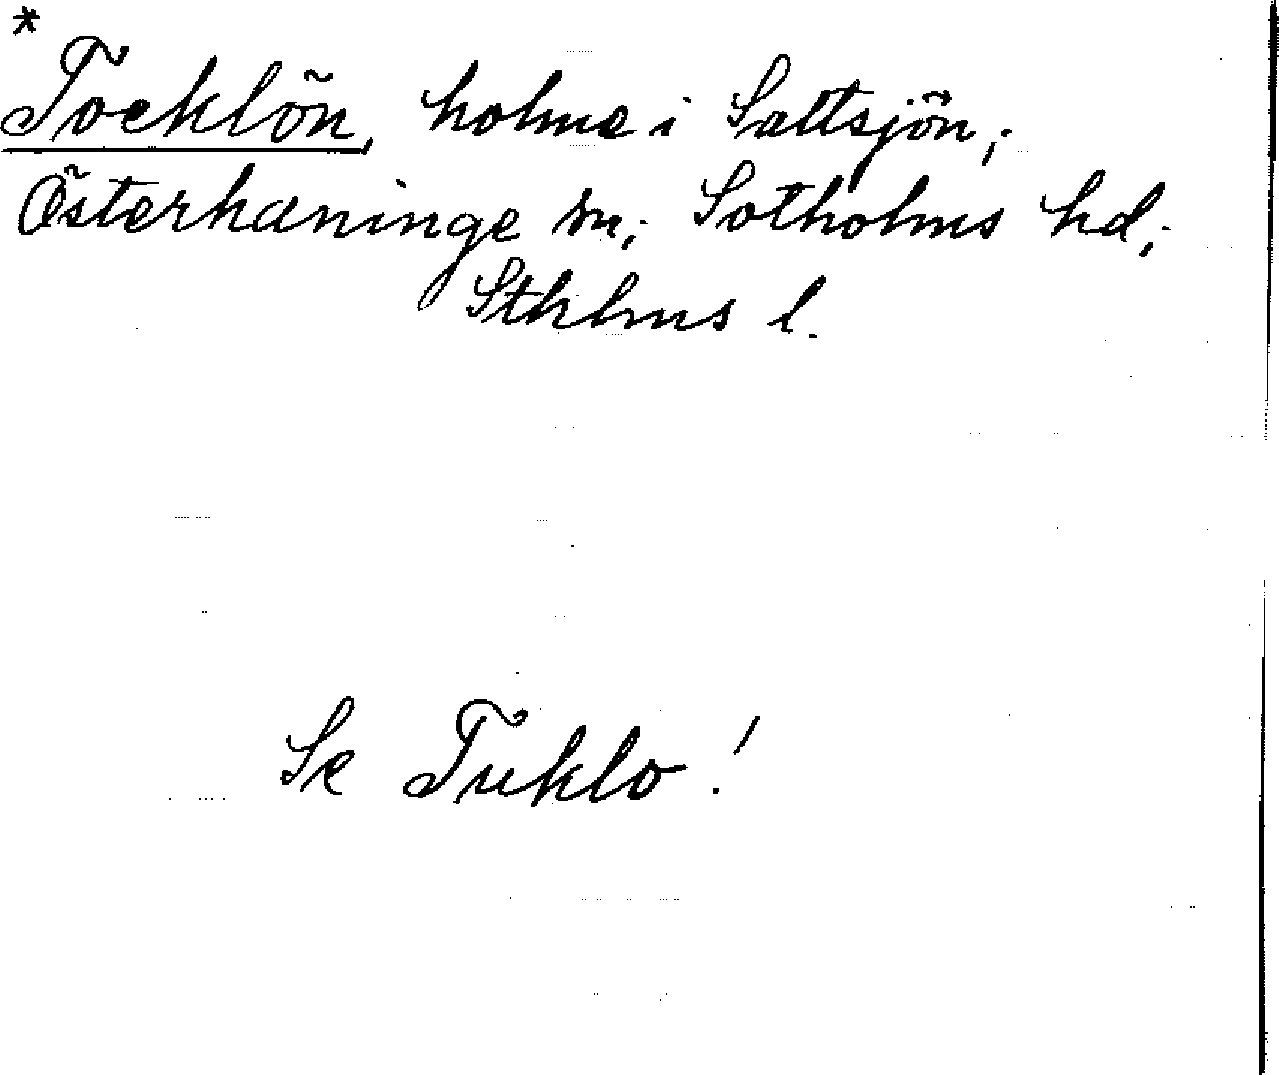 *
Tocklön, holme i Saltsjön,;
Österhaninge sn,; Sotholms hd,;
Sthlms l.
Se Tuklo!